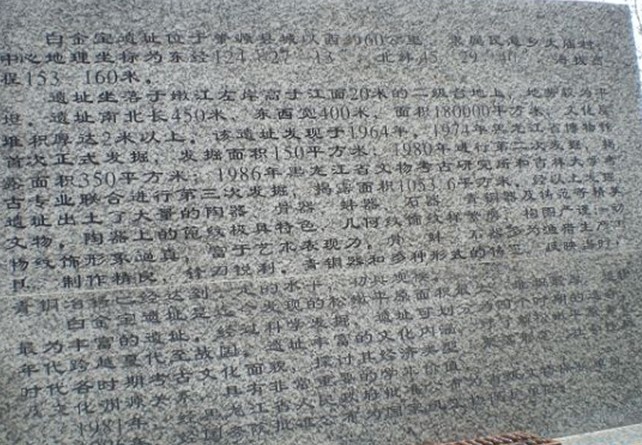 白金宝遗址位于肇源县城以西约60公里 隶属民意乡大庙村,
中心地理坐标为东经124 27 13 北纬45 29 40 海拔高
程153 160米。
遗址坐落于嫩江左岸高于江面20米的二级台地上, 地势较为平
坦。遗址南北长450米、东西宽400米, 面积180000平方米, 文化层
堆积厚达2米以上。该遗址发现于1964年, 1974年黑龙江省博物馆
首次正式发掘, 发掘面积150平方米; 1980年进行第二次发掘, 揭
露面积350平方米; 1986年黑龙江省文物考古研究所和吉林大学考
古专业联合进行第三次发掘, 揭露面积1053.6平方米。经以上发现
遗址出土了大量的陶器 骨器 蚌器 石器 青铜器及铸范等精美
文物。陶器上的篦纹极具特色, 几何纹饰纹样宽广, 构图严谨; 动
物纹饰形象逼真, 富于艺术表现力。骨 蚌 石器多为渔猎生产工
具 制作精良, 锋刃锐利。青铜器和多种形式的铸范, 反映当时,
青铜冶铸已经达到 定的水平, 初具规模。
白金宝遗址是迄今发现的松嫩平原面积最大
最为丰富的遗址。经过科学发掘 遗址可划分为四个时期的遗存
年代跨越夏代至战国。遗址丰富的文化内涵
时代各时期考古文化面貌, 探讨其经济类型
及文化渊源关系 具有非常重要的学术价值。
1981年, 经黑龙江省人民政府批准公布为省级文物保护单位
批准公布为